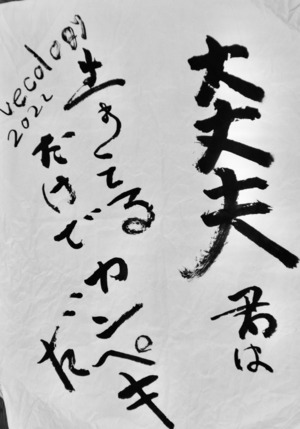 大丈夫
君は
生きてる
だけで
カンペキ
だ
vecology
2022